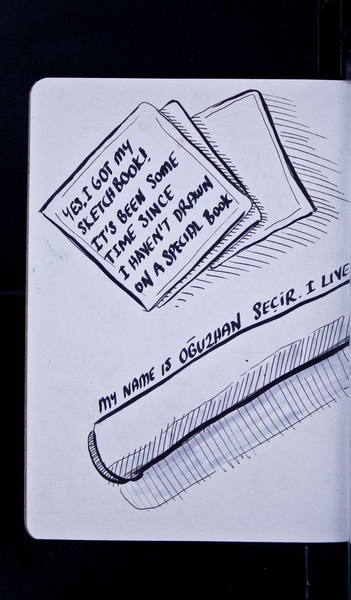 YES, I GOT MY
SKETCHBOOK!
IT'S BEEN SOME
TIME SINCE
I HAVEN'T DRAWN
ON A SPECIAL BOOK
MY NAME IS OĞUZHAN SEÇİR. I LIVE